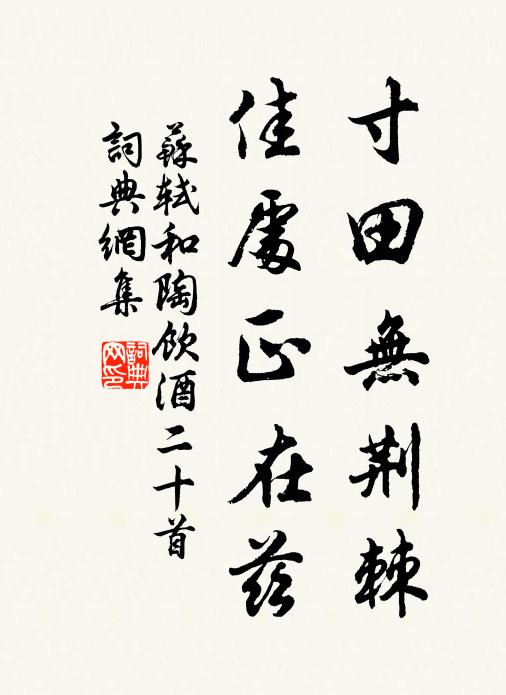 寸田無荆棘
佳處正在茲
蘇軾和陶飲酒二十首
詞典網集
詞典網印